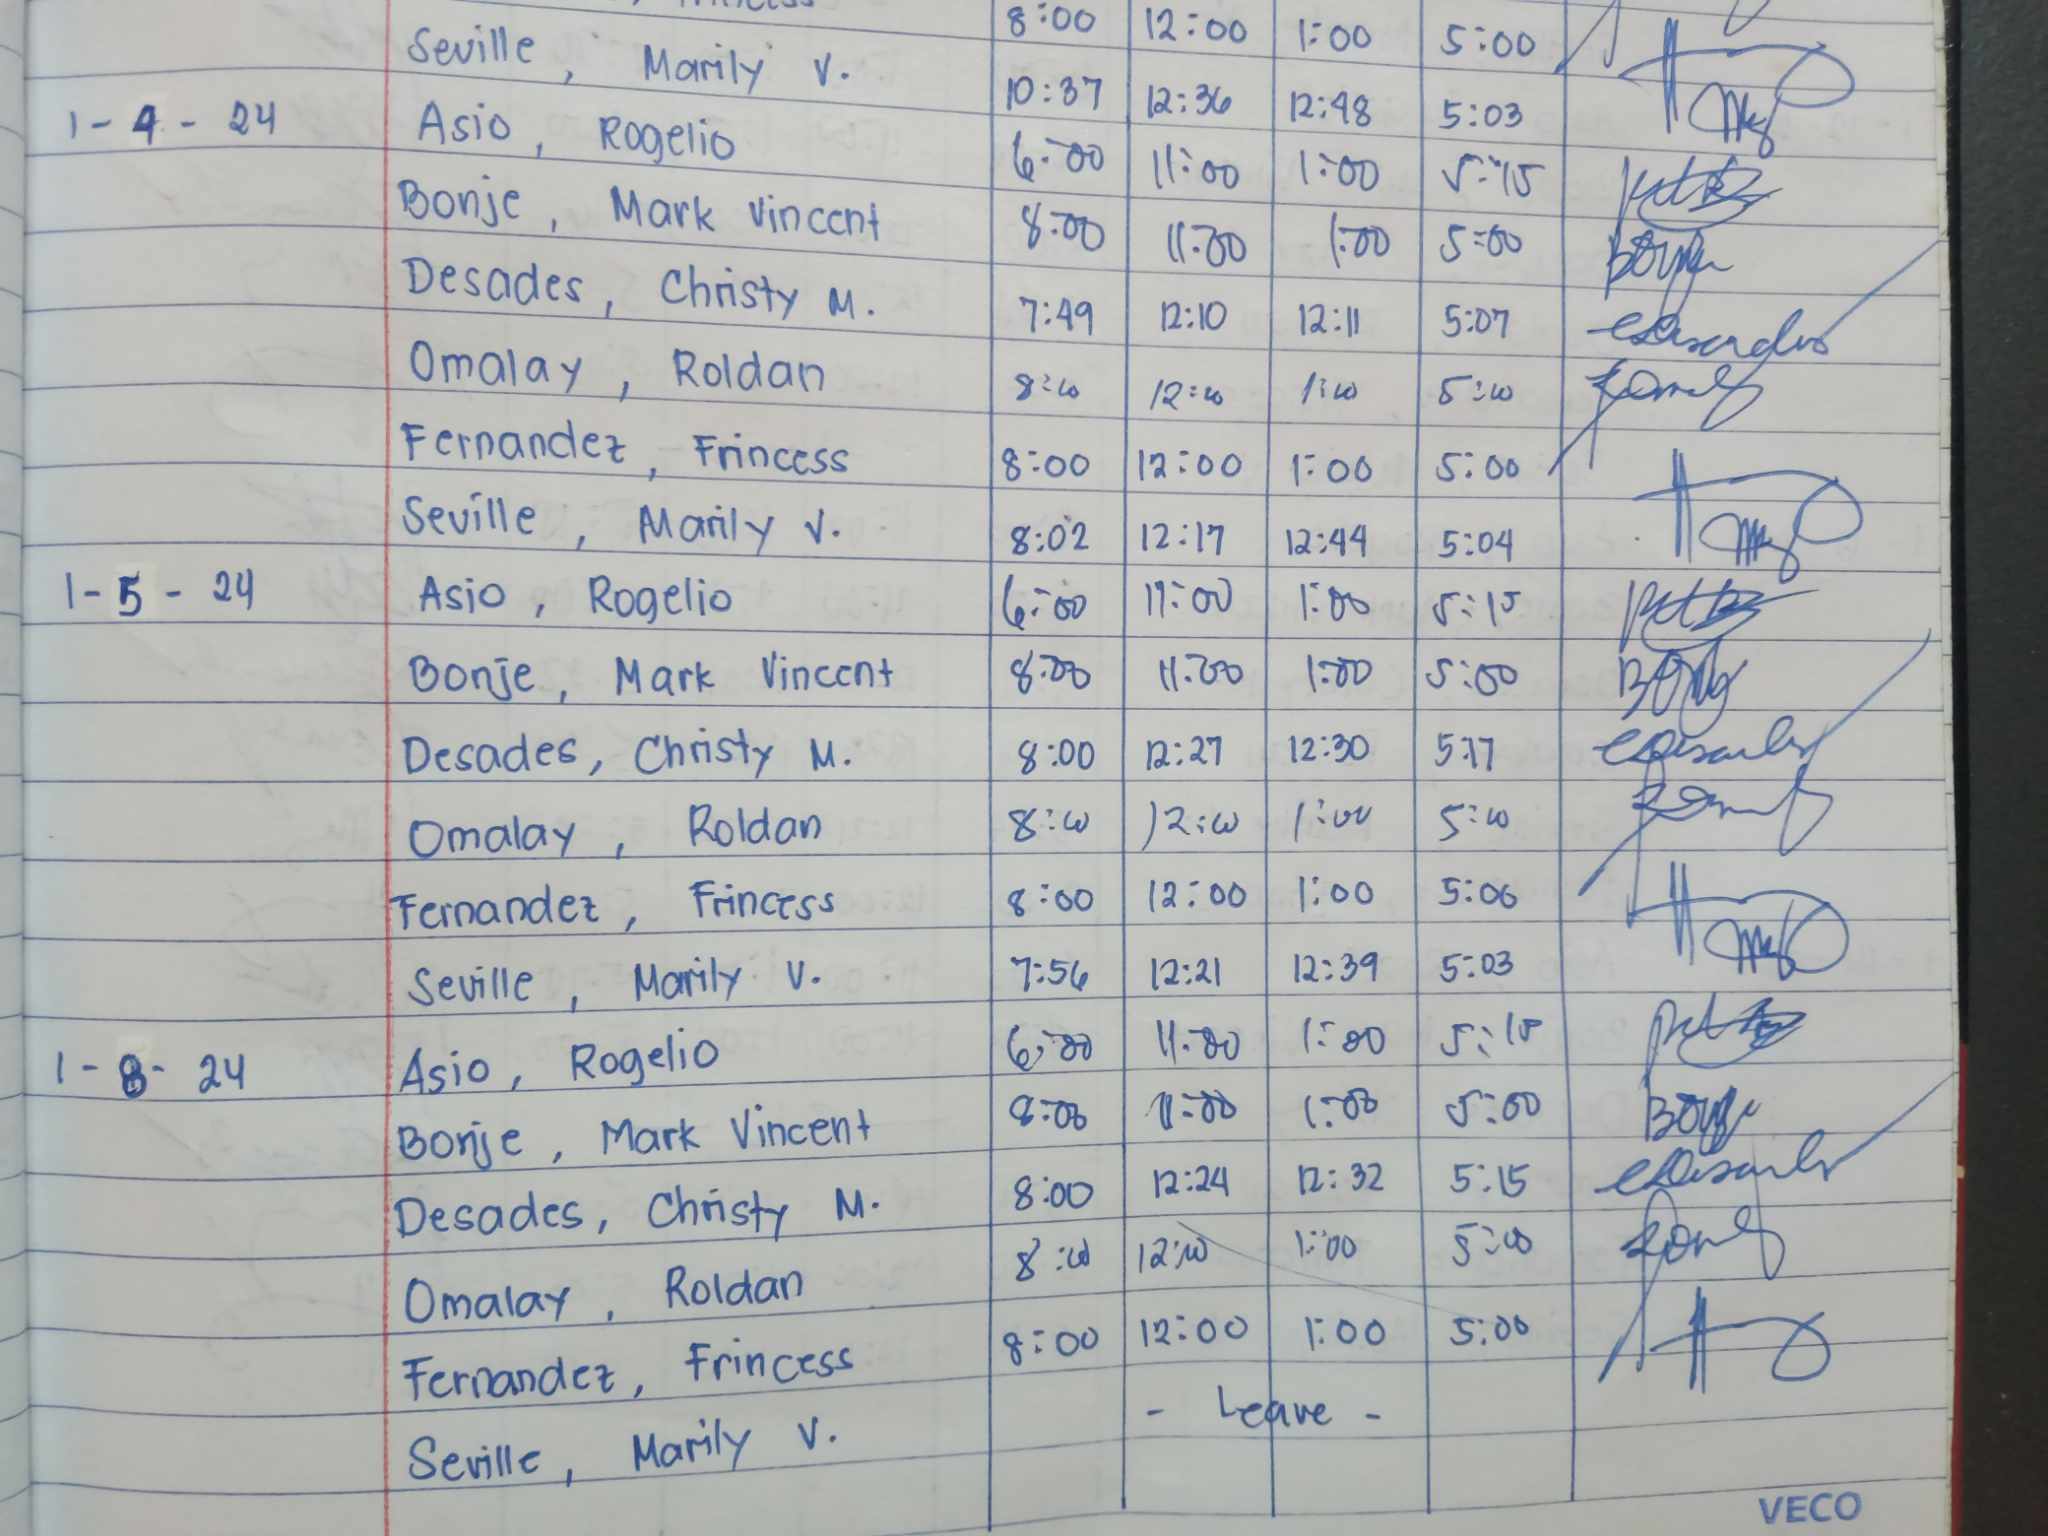 8:00 12:00 1:00 5:00
Seville, Marily V. 10:37 12:36 12:48 5:03
1-4-24 Asio, Rogelio 6:00 11:00 1:00 5:15
Bonje, Mark Vincent 8:00 11:00 1:00 5:00
Desades, Christy M. 7:49 12:10 12:11 5:07
Omalay, Roldan 8:00 12:00 1:00 5:00
Fernandez, Frincess 8:00 12:00 1:00 5:00
Seville, Marily V. 8:02 12:17 12:44 5:04
1-5-24 Asio, Rogelio 6:00 11:00 1:00 5:15
Bonje, Mark Vincent 8:00 11:00 1:00 5:00
Desades, Christy M. 8:00 12:27 12:30 5:17
Omalay, Roldan 8:00 12:00 1:00 5:00
Fernandez, Frincess 8:00 12:00 1:00 5:00
Seville, Marily V. 7:56 12:21 12:39 5:03
1-8-24 Asio, Rogelio 6:00 11:00 1:00 5:15
Bonje, Mark Vincent 8:00 11:00 1:00 5:00
Desades, Christy M. 8:00 12:24 12:32 5:15
Omalay, Roldan 8:00 12:00 1:00 5:00
Fernandez, Frincess 8:00 12:00 1:00 5:00
Seville, Marily V. - Leave -
VECO